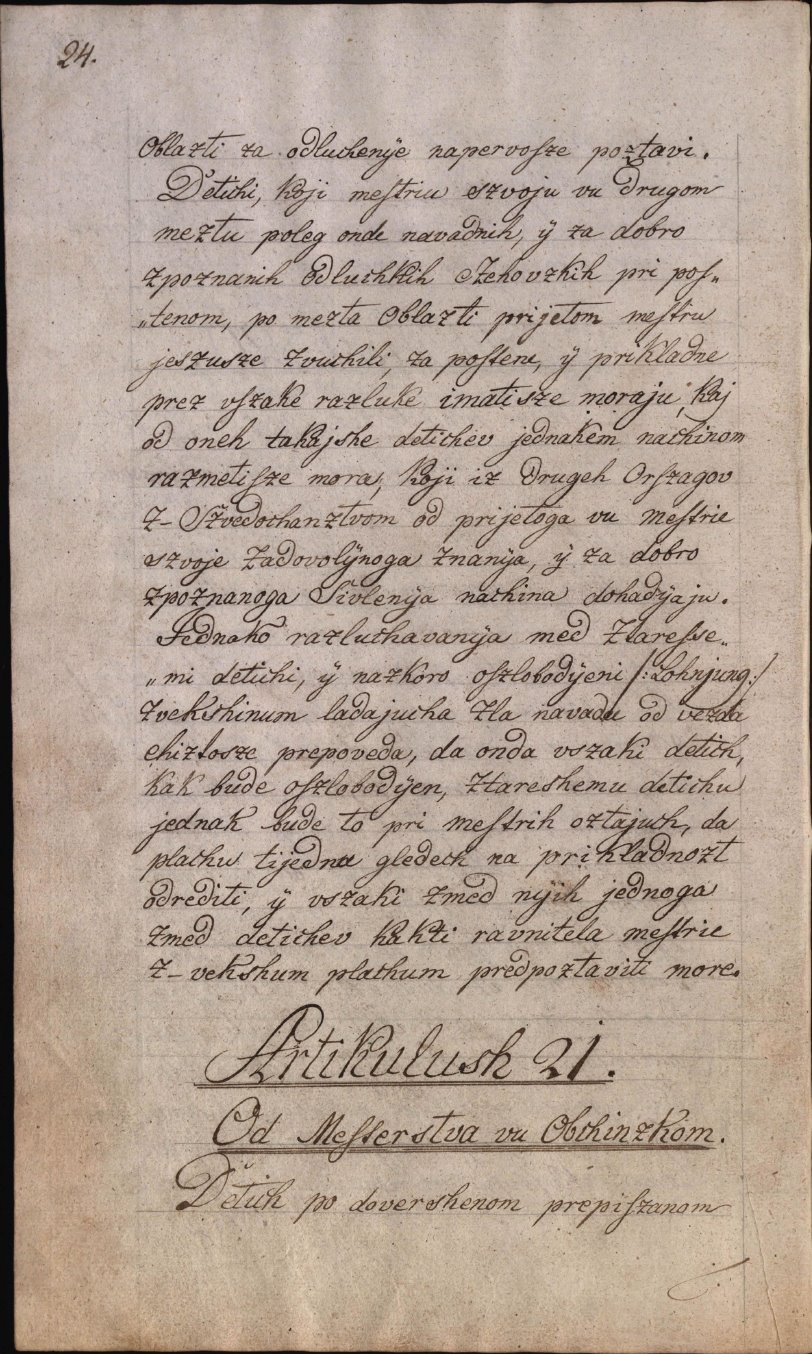 24.
Oblazti za odluchenye napervosze poztavi.
Détichi, koji mestriu szvoju vu drugom
meztu poleg onde navadnih, ÿ za dobro
zpoznanih odluchkih Czehovzkih pri pos„
„tenom, po mezta Oblazti prijetom mestru
jeszusze zvuchili, za postene, ÿ prikladne
prez vszake razluke imatisze moraju, kaj
od oneh takajshe detichev jednakem nachinom
razmetisze mora, koji iz drugeh Orszagov
z- Szvedochanztvom od prijetoga vu mestrie
szvoje zadovolÿnoga znanya, ÿ za dobro
zpoznanoga Sivlenya nachina dohadyaju.
Jednako razluchavanya med ztaresse„
„mi detichi, ÿ nazkoro oszlobodyeni /: Lohnjung :/
zvekshinum ladajucha zla navada od vezda
chiztosze prepoveda, da onda vszaki detich,
kak bude oszlobodyen, ztareshemu detichu
jednak bude to pri mestrih oztajuch, da
plachu tijedna gledech na prikladnozt
odrediti, ÿ vszaki zmed nyih jednoga
zmed detichev kakti ravnitela mestrie
z- vekshum plachum predpoztaviti more.
Artikulush 21.
Od Messerstva vu Obchinzkom.
Détich po dovershenom prepiszanom